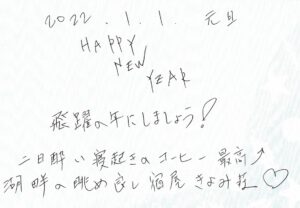 2022.1.1. 元旦
HAPPY
NEW
YEAR
飛躍の年にしましょう!
二日酔い寝起きのコーヒー最高↗
湖畔の眺め良し宿屋きよみ荘♡